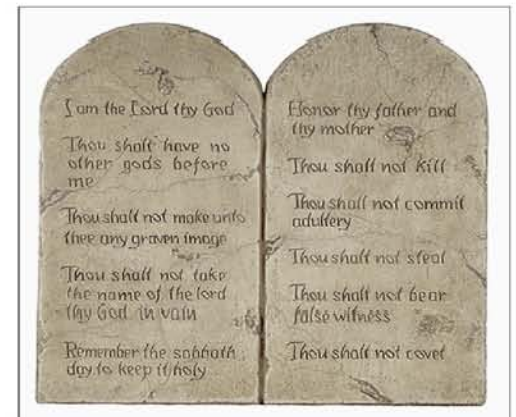 I am the Lord thy God
Thou shalt have no
other gods before
me
Thou shall not make unto
thee any graven image
Thou shall not take
the name of the lord
thy God in vain
Remember the sabbath
day to keep it holy
Honor thy father and
thy mother
Thou shall not kill
Thou shall not commit
adultery
Thou shall not steal
Thou shall not bear
false witness
Thou shalt not covet